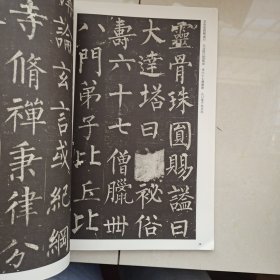 靈骨珠圓賜謚曰
大達塔曰祕俗
壽六十七僧臘卌
八門弟子比丘比
論玄言或紀綱
寺脩禪秉律分